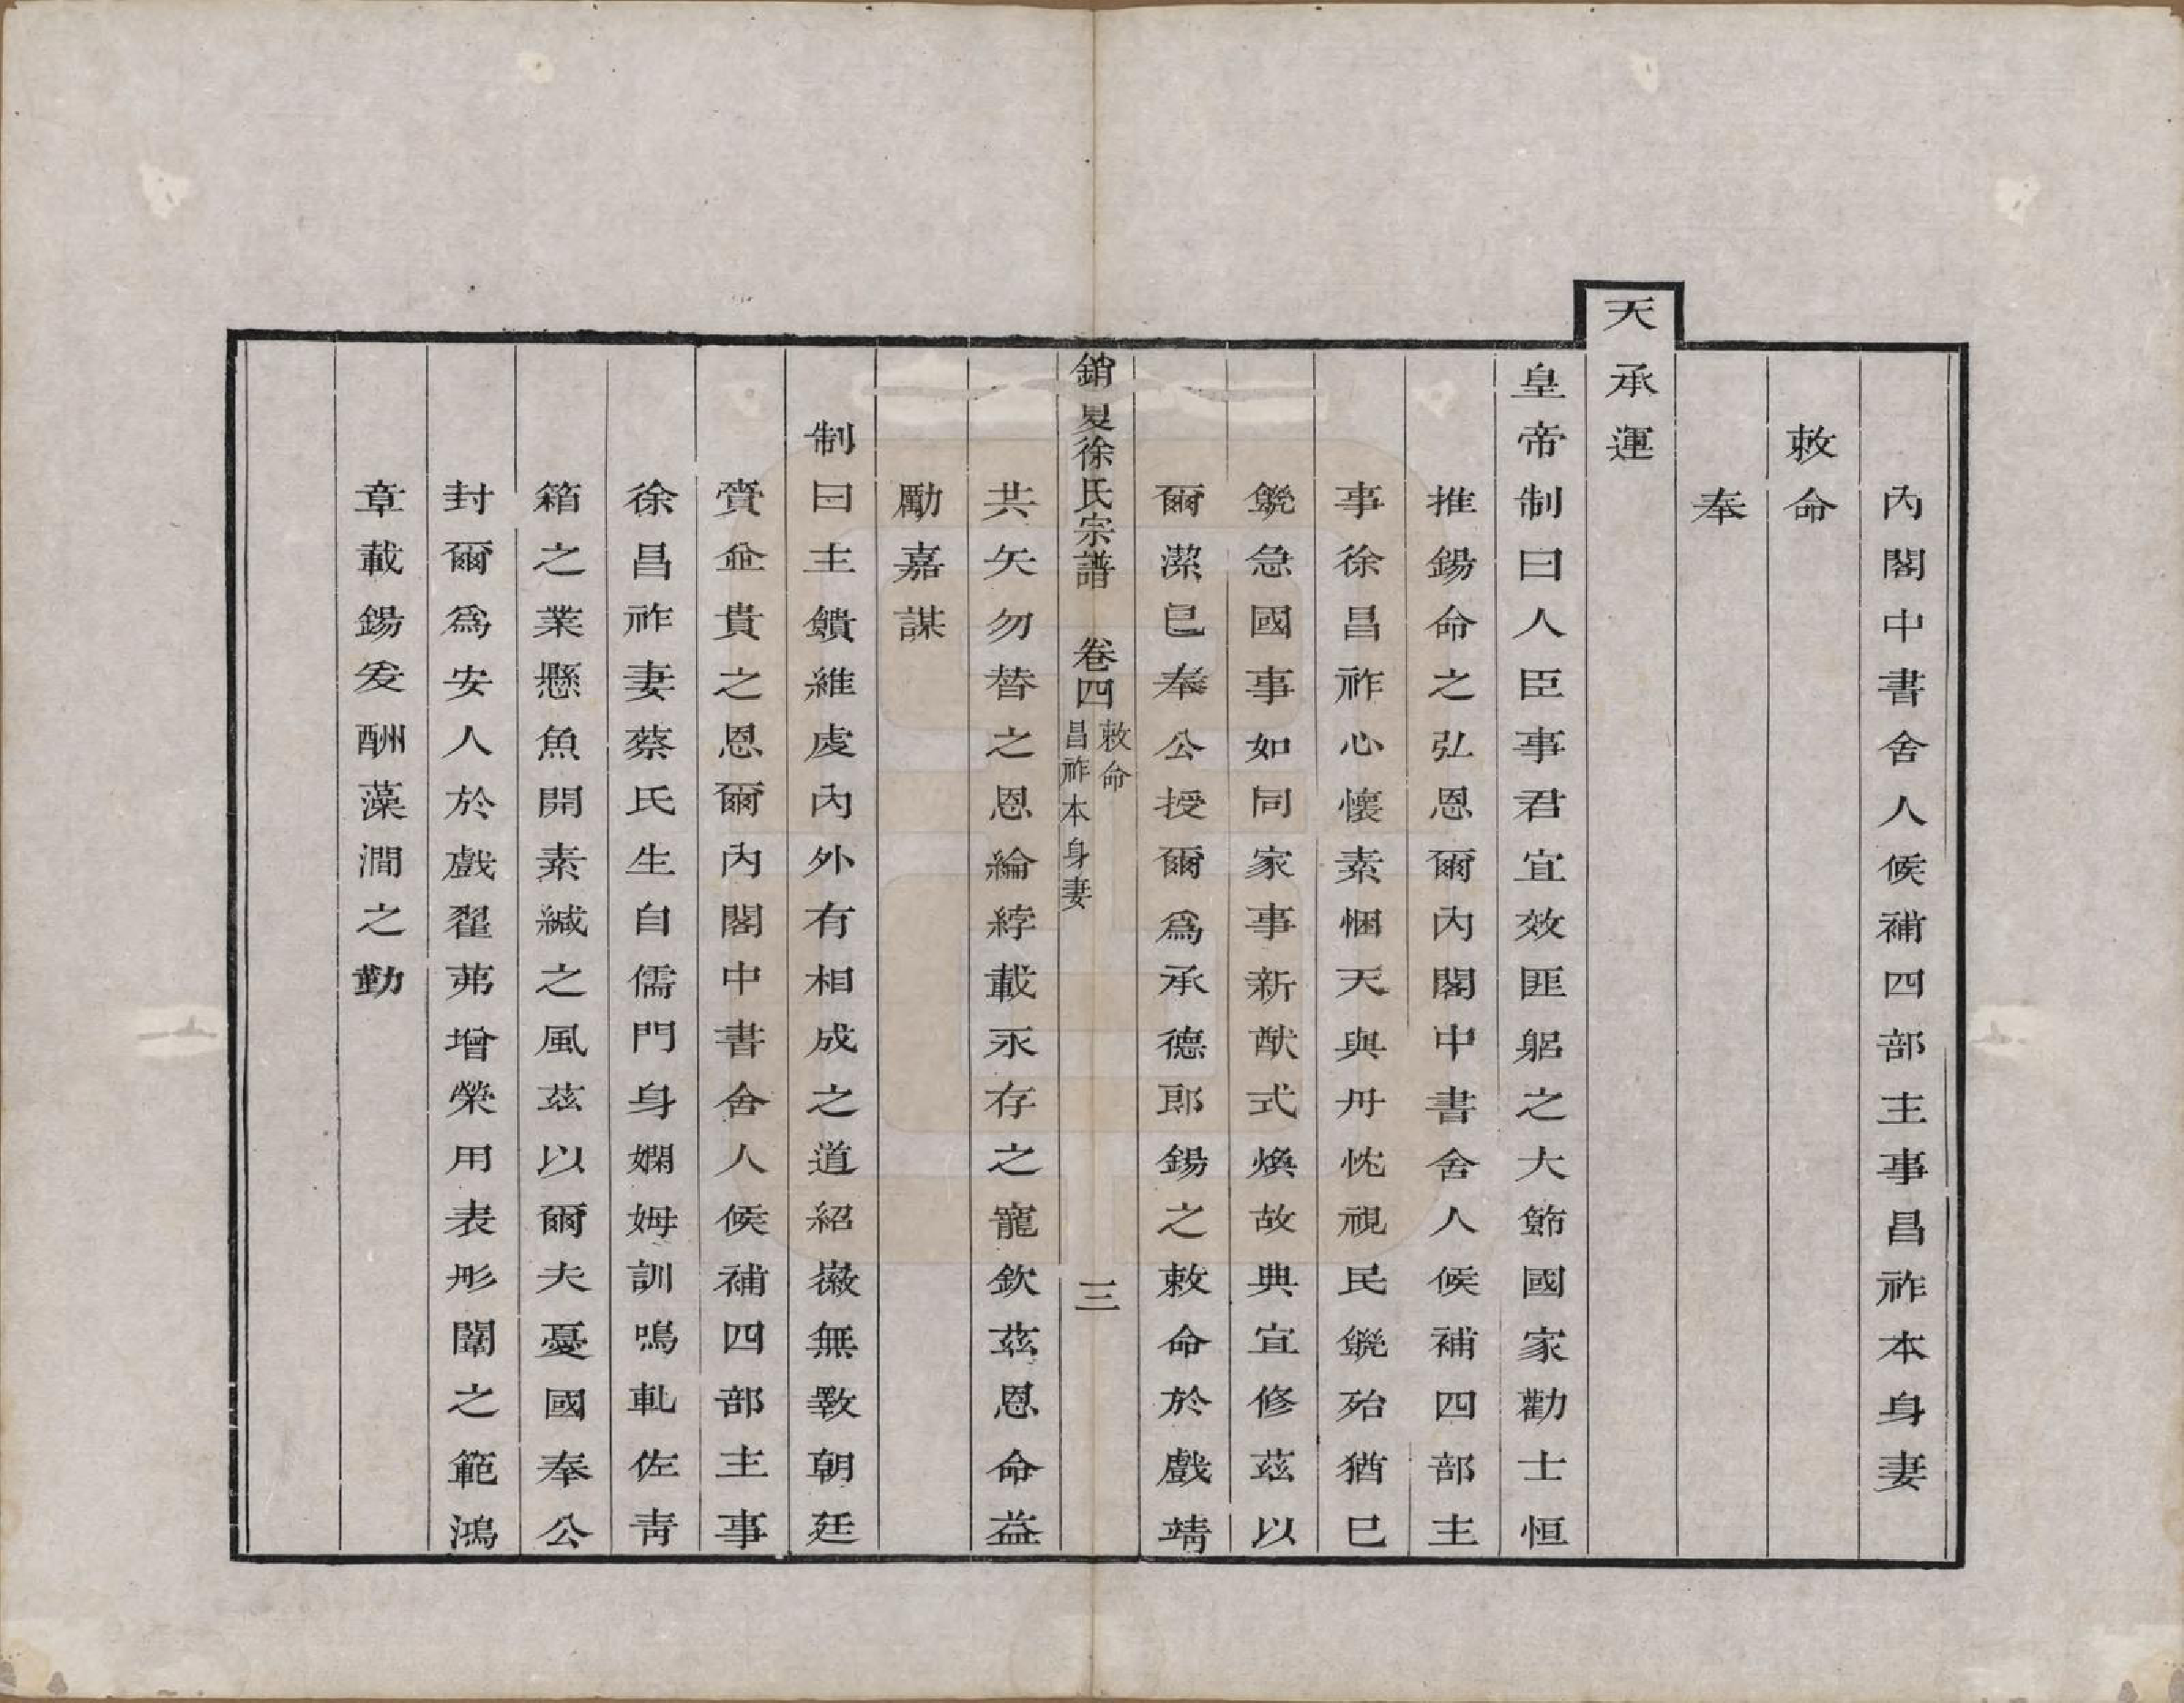 內閣中書舍人候補四部主事昌祚本身妻
敕命
奉
天承運
皇帝制曰人臣事君宜效匪躬之大節國家勸士恒
推錫命之弘恩爾內閣中書舍人候補四部主
事徐昌祚心懷素悃天與丹忱視民饑殆猶已
饑急國事如同家事新猷式煥故典宜修茲以
爾潔已奉公授爾爲承德郎錫之敕命於戲靖
共矢勿替之恩綸綍載永存之寵欽茲恩命益
勵嘉謀
制曰主饋維處內外有相成之道紹徽無斁朝廷
賚並貴之恩爾內閣中書舍人候補四部主事
徐昌祚妻蔡氏生自儒門身嫻姆訓鳴軋佐靑
箱之業懸魚開素緘之風茲以爾夫憂國奉公
封爾爲安人於戲翟茀增榮用表彤闈之範鴻
章載錫爰酬藻澗之勤
銷夏徐氏宗譜 卷四 敕命 昌祚本身妻 三